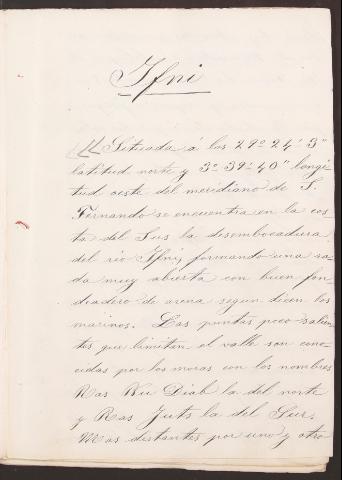 Ifni
Situada á los 29º 24' 3"
latitud norte y 3º 39' 40" longi
tud oeste del meridiano de S.
Fernando se encuentra en la cos
ta del Sus la desembocadura
del rio Ifni, formando una ra
da muy abierta con buen fon
deadero de arena segun dicen los
marinos. Las puntas poco salien
tes que limitan el valle son cono
cidas por los moros con los nombres
Ras Uu Diab la del norte
y Ras Juts la del Sur.
Mas distantes por uno y otro